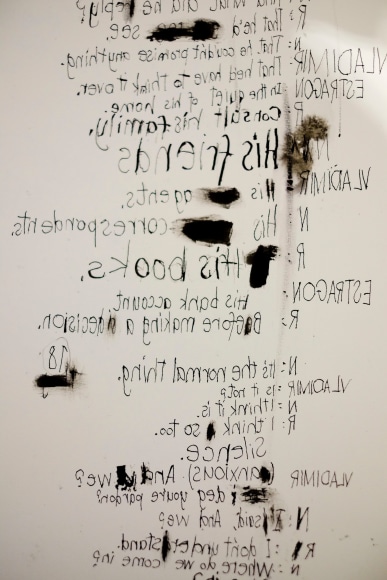 R: And what did he reply?
That he'd see.
N: That he couldn't promise anything.
VLADIMIR
That he'd have to think it over.
ESTRAGON
In the quiet of his home.
R Consult his family.
N His friends
VLADIMIR
His agents.
N His correspondents.
R: His books.
ESTRAGON
N: His bank account
R: Beefore making a decision.
N: Its the normal thing. 18
VLADIMIR: Is it not?
N: I think it is.
R: I think so too.
Silence.
VLADIMIR (anxious). And we?
I beg you're pardon?
N: I said, And we?
R I don't understand.
N: Where do we come in?